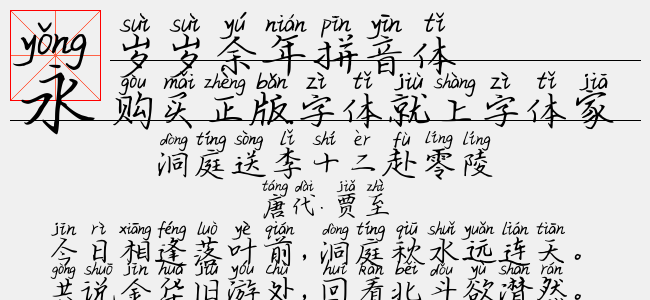 yǒng
永
suì suì yú nián pīn yīn tǐ
岁岁余年拼音体
gòu mǎi zhèng bǎn zì tǐ jiù shàng zì tǐ jiā
购买正版字体就上字体家
dòng tíng sòng lǐ shí èr fù líng líng
洞庭送李十二赴零陵
táng dài jiǎ zhì
唐代·贾至
jīn rì xiāng féng luò yè qián dòng tíng qiū shuǐ yuǎn lián tiān
今日相逢落叶前，洞庭秋水远连天。
gòng shuō jīn huá jiù yóu chù huí kàn běi dǒu yù shān rán
共说金华旧游处，回看北斗欲潸然。